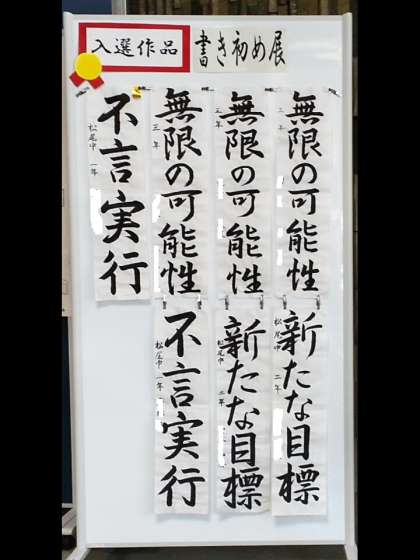 入選作品
書き初め展
無限の可能性
三年
無限の可能性
三年
無限の可能性
三年
不言実行
松尾中 一年
新たな目標
松尾中 二年
新たな目標
松尾中 二年
不言実行
松尾中 一年